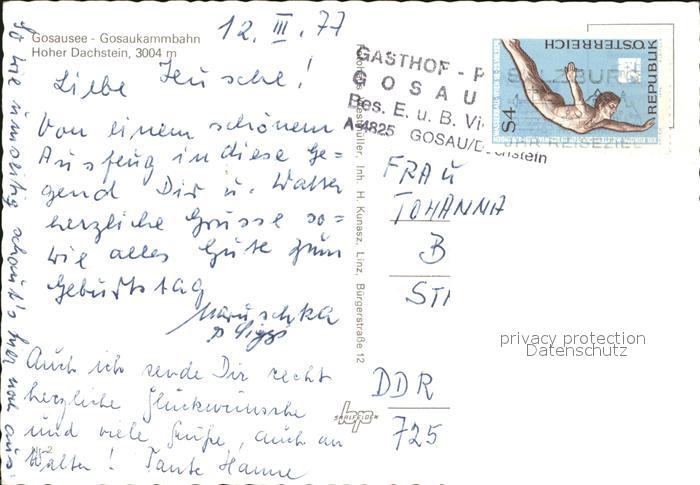 Gosausee - Gosaukammbahn
Hoher Dachstein, 3004 m
12. III. 77
Liebe
Von einem schönem
Ausflug in diese Ge=
gend Dir u. Walter
herzliche Grüsse so=
wie alles Gute zum
Geburtstag
Maruschka
Auch ich sende Dir recht
herzliche Glückwünsche
und viele Grüße, auch an
Walter! Tante Hanne
Nr. 2
schaut's hier noch aus
müller, Inh. H. Kunasz, Linz, Bürgerstraße 12
GASTHOF - P
GOSAU
Bes. E. u. B. Vi
A-4825 GOSAU/Dachstein
REPUBLIK ÖSTERREICH
S4
SALZBURG
FRAU
JOHANNA
B
ST
DDR
725
SAALFELDEN
privacy protection
Datenschutz